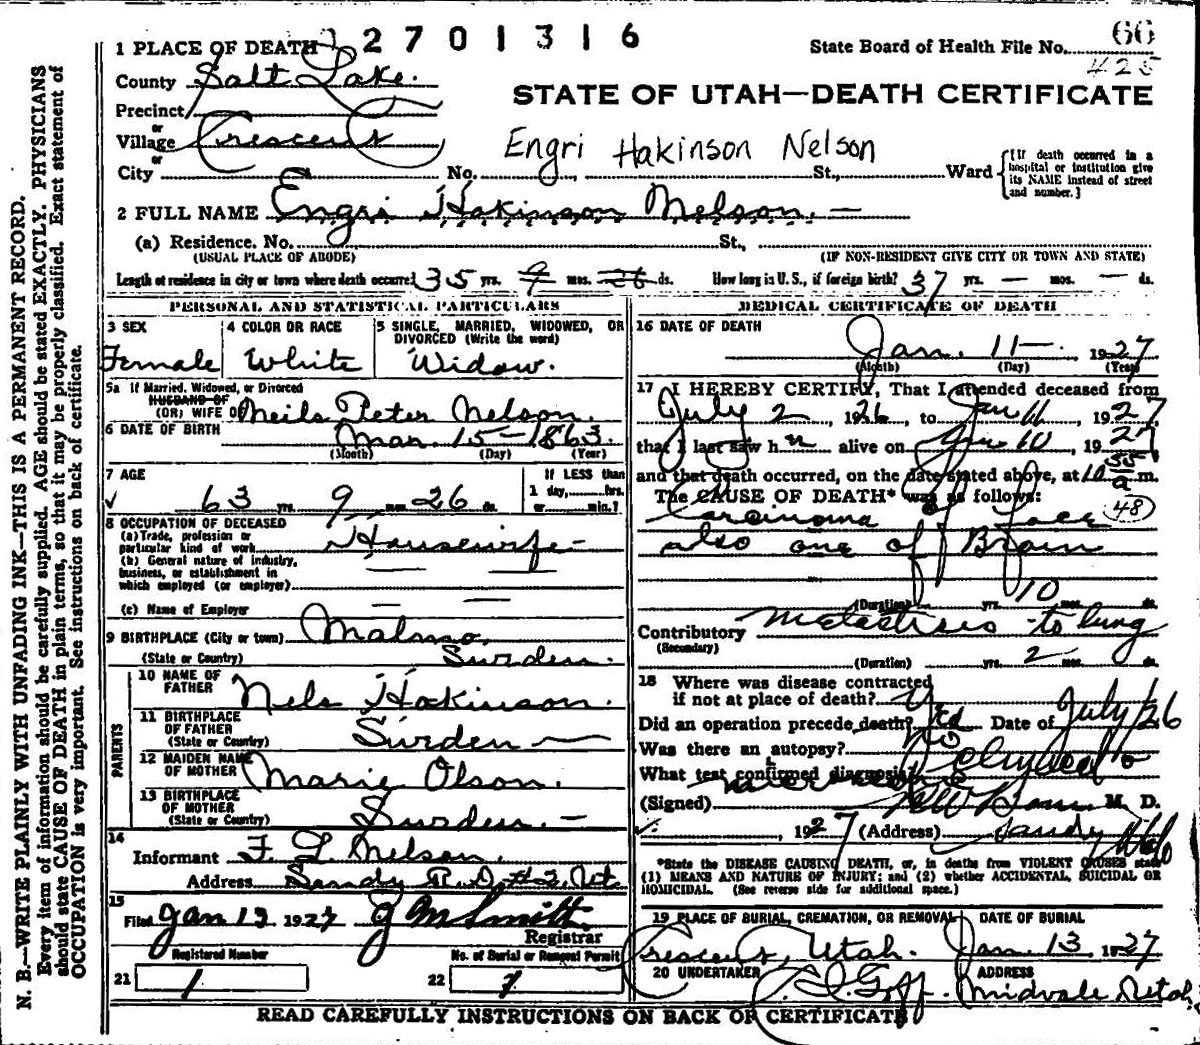 2 7 0 1 3 1 6
State Board of Health File No. 66
425
1 PLACE OF DEATH
County Salt Lake.
STATE OF UTAH—DEATH CERTIFICATE
Precinct
or
Village Crescent
or
City No. St., Ward
Engri Hakinson Nelson
[If death occurred in a hospital or institution give its NAME instead of street and number.]
2 FULL NAME Engri Hakinson Nelson. —
(a) Residence. No. St.,
(USUAL PLACE OF ABODE) (IF NON-RESIDENT GIVE CITY OR TOWN AND STATE)
Length of residence in city or town where death occurred 35 yrs. 9 mos. 26 ds. How long in U. S., if foreign birth? 37 yrs. — mos. — ds.
PERSONAL AND STATISTICAL PARTICULARS
3 SEX
Female
4 COLOR OR RACE
White
5 SINGLE, MARRIED, WIDOWED, OR DIVORCED (Write the word)
Widow.
5a If Married, Widowed, or Divorced
HUSBAND OF
(OR) WIFE OF Neils Peter Nelson.
6 DATE OF BIRTH Mar. 15 - 1863.
(Month) (Day) (Year)
7 AGE
63 yrs. 9 mos. 26 ds.
If LESS than
1 day, hrs.
or min.?
8 OCCUPATION OF DECEASED
(a) Trade, profession or
particular kind of work Housewife -
(b) General nature of industry,
business, or establishment in
which employed (or employer)
(c) Name of Employer
9 BIRTHPLACE (City or town)
(State or Country) Sweden.
PARENTS
10 NAME OF
FATHER Nels Hakinson.
11 BIRTHPLACE
OF FATHER
(State or Country) Sweden —
12 MAIDEN NAME
OF MOTHER Marie Olson.
13 BIRTHPLACE
OF MOTHER
(State or Country) Sweden. -
14
Informant F. L. Nelson.
Address Sandy R.D. #2, Ut
15
Filed Jan 13 1927 J M Smith
Registrar
Registered Number
21 1
No. of Burial or Removal Permit
22 1
MEDICAL CERTIFICATE OF DEATH
16 DATE OF DEATH
Jan. 11 — 1927
(Month) (Day) (Year)
17 I HEREBY CERTIFY, That I attended deceased from
July 2, 1926, to Jan 11, 1927
that I last saw h alive on Jan 10, 1927
and that death occurred, on the date stated above, at 10 55 a m.
The CAUSE OF DEATH* was as follows:
Carcinoma of Face (48)
also one of Brain
(Duration) yrs. 10 mos. ds.
Contributory Metastisis to lung
(Secondary)
(Duration) yrs. 2 mos. ds.
18 Where was disease contracted
if not at place of death?
Did an operation precede death? Yes Date of July/26
Was there an autopsy? No
What test confirmed diagnosis?
(Signed) M. D.
, 1927 (Address) Sandy Utah
*State the DISEASE CAUSING DEATH, or, in deaths from VIOLENT CAUSES state
(1) MEANS AND NATURE OF INJURY; and (2) whether ACCIDENTAL, SUICIDAL OR
HOMICIDAL. (See reverse side for additional space.)
19 PLACE OF BURIAL, CREMATION, OR REMOVAL
Crescent, Utah.
DATE OF BURIAL
Jan. 13 1927
20 UNDERTAKER
Goff.
ADDRESS
Midvale Utah,
READ CAREFULLY INSTRUCTIONS ON BACK OF CERTIFICATE
N. B.—WRITE PLAINLY WITH UNFADING INK—THIS IS A PERMANENT RECORD.
Every item of information should be carefully supplied. AGE should be stated EXACTLY. PHYSICIANS
should state CAUSE OF DEATH in plain terms, so that it may be properly classified. Exact statement of
OCCUPATION is very important. See instructions on back of certificate.